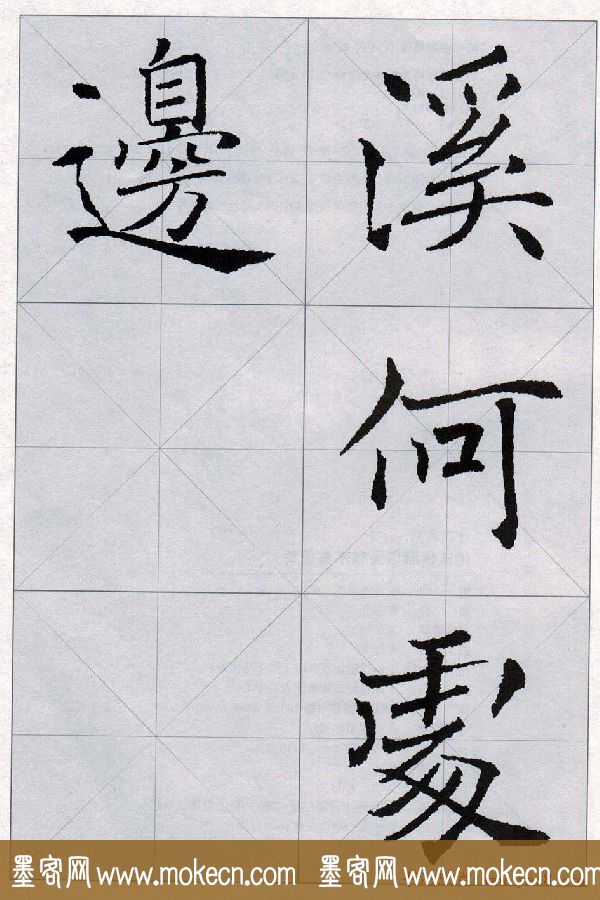 溪何處
邊
墨客网 www.mokecn.com 墨客网 www.mokecn.com